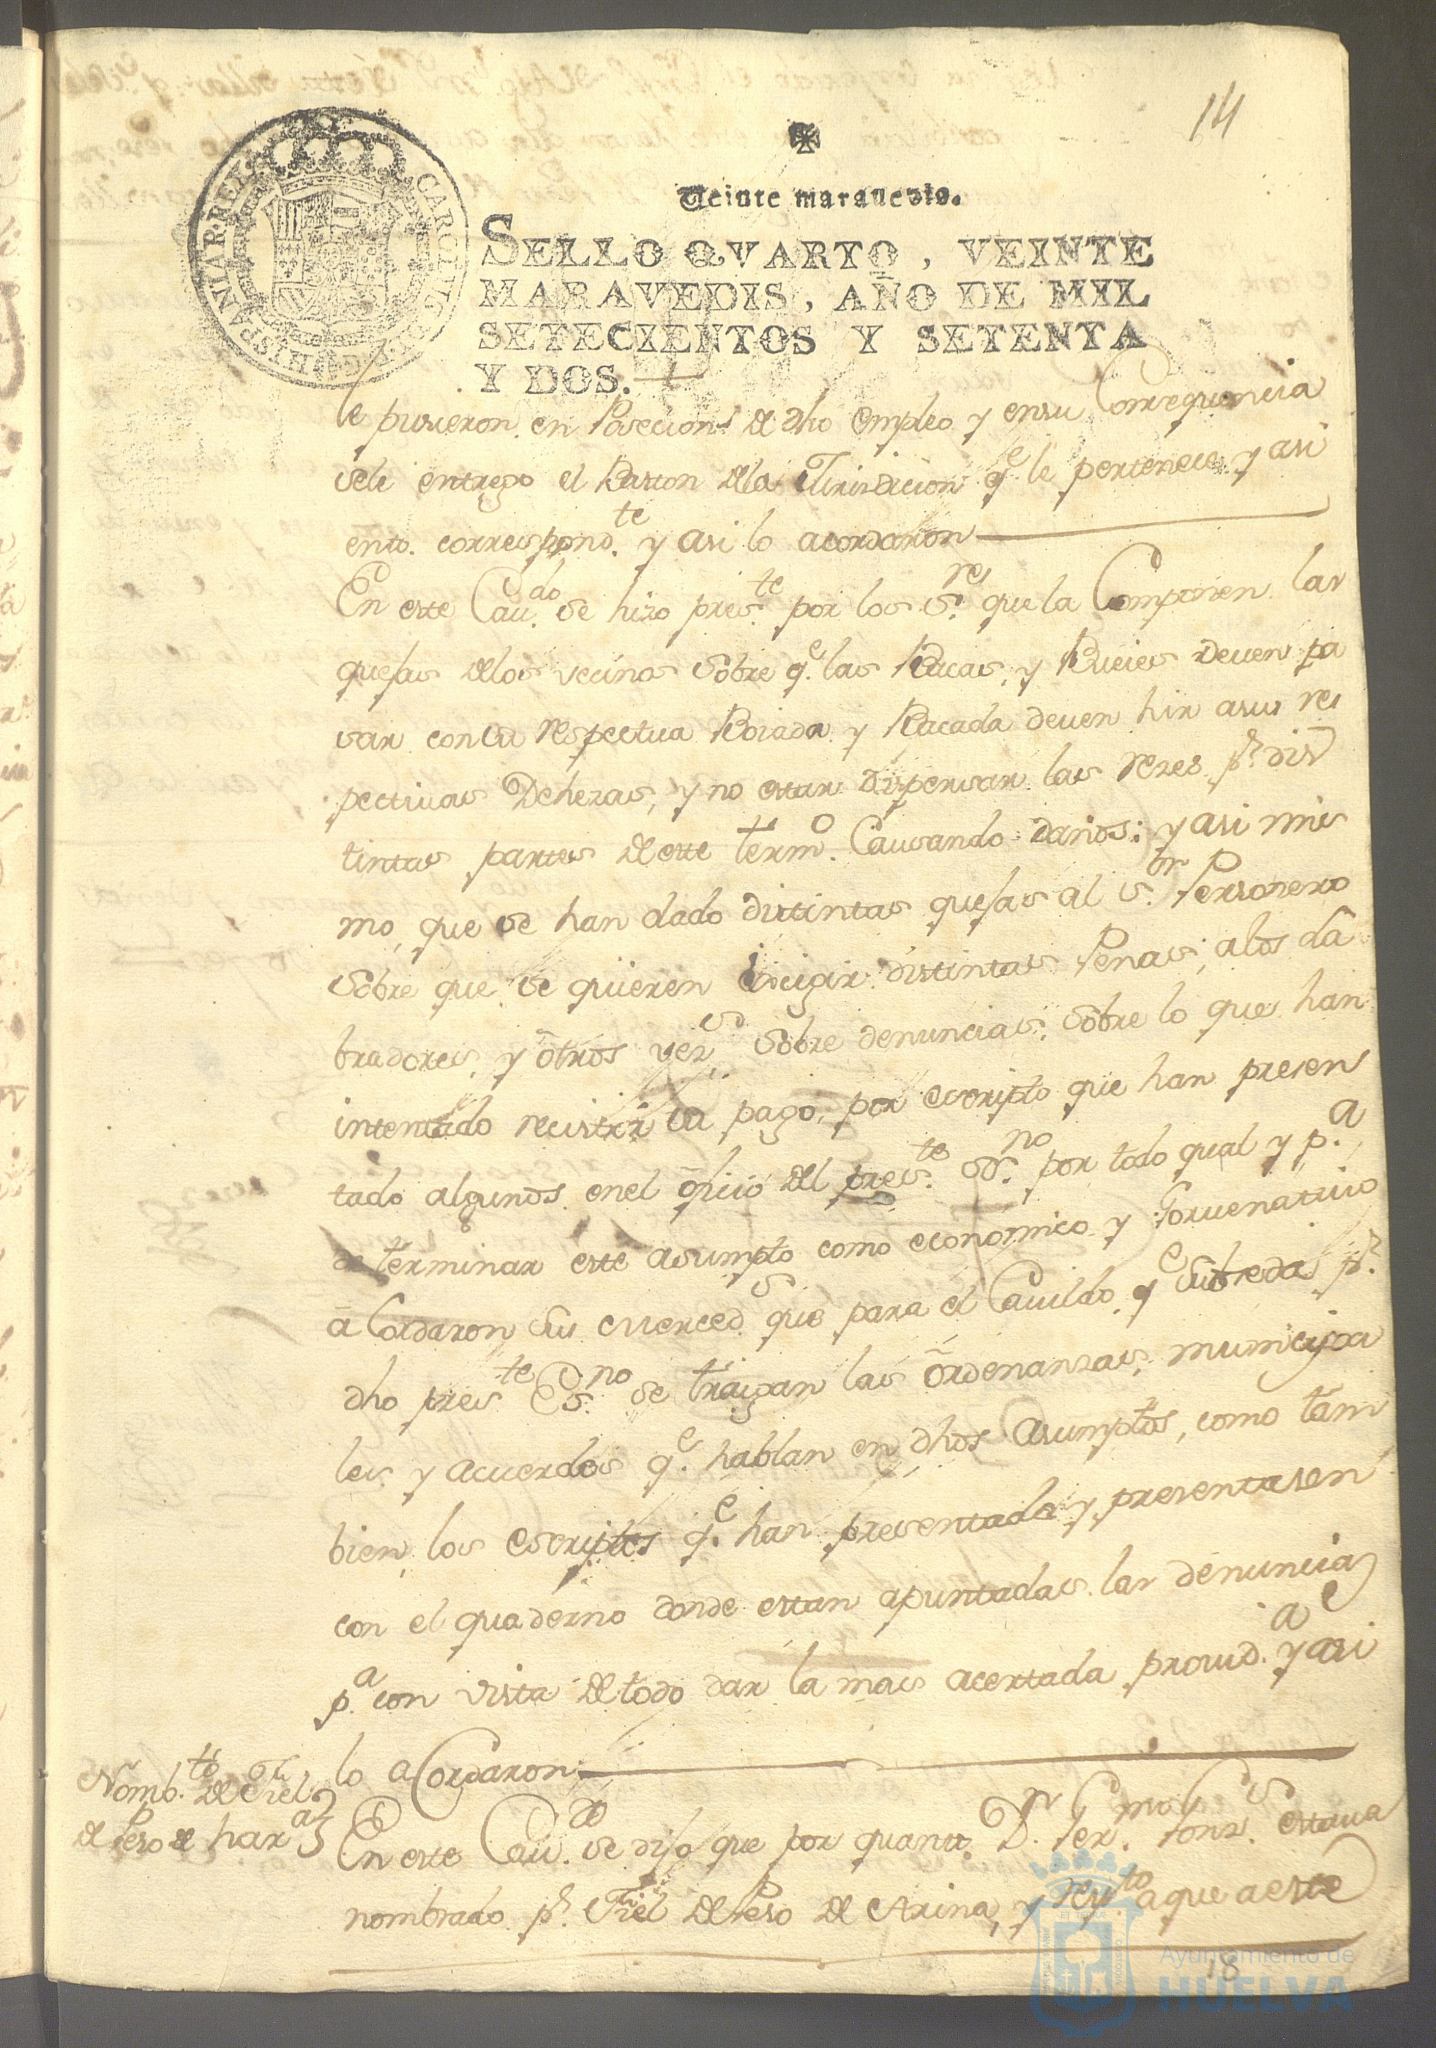 14
Veinte maravedis.
SELLO QVARTO, VEINTE
MARAVEDIS, AÑO DE MIL
SETECIENTOS Y SETENTA
Y DOS.
CAROLUS III D G HISPANIAR REX
le pusieron en Posecion de dho empleo y ensu Consequencia
sele entrego el Baston dela Jurisdicion q.e le pertenece y asi
ento. correspond.te y asi lo acordaron
En este Cau.do se hizo pres.te por los S.res que la Componen las
quejas delos vecinos sobre q.e las Bacas, y Bueies deven pa
sar con su respectiva Boiada y Bacada deven hir asus res
pectivas Dehezas, y no estar dispersas las rezes p.r dis
tintas partes de este term.o Causando daños; y asi mis
mo, que se han dado distintas quejas al S.or Personero
sobre que se quieren exigir distintas Penas, alos la
bradores, y otros vez.s sobre denuncias, sobre lo que han
intentado recistir su pago, por escripto que han presen
tado algunos enel oficio del pres.te SS.no por todo qual y p.a
determinar este asumpto como economico y Governativo
aCordaron Sus merced.s que para el Cauildo q.e Subceda p.r
dho pres.te Es.no se traigan las ordenanzas municipa
les y acuerdos q.e hablan en dhos asumptos, como tam
bien los escriptos q.e han presentado y presentasen
con el quaderno donde estan apuntadas las denuncias
p.a con vista de todo dar la mas acertada provid.a y asi
lo aCordaron
Nomb.to de Fiel
de Peso de har.a
En este Cau.do se dijo que por quanto D.n Ger.mo Gonz.s estava
nombrado p.r Fiel de Peso de Arina, y resp.to aque aeste
18
Ayuntamiento de
HUELVA